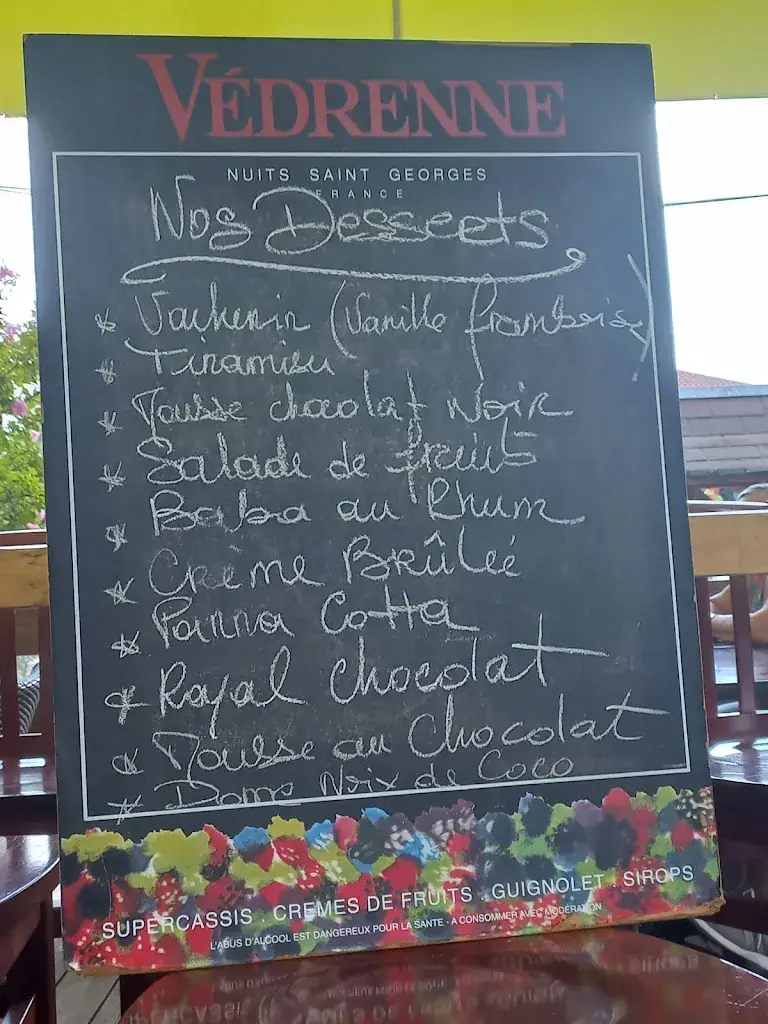 VÉDRENNE
NUITS SAINT GEORGES
FRANCE
Nos Desserts
* Vacherin (Vanille framboise)
* Tiramisu
* Mousse chocolat Noir
* Salade de fruits
* Baba au Rhum
* Crème Brûlée
* Panna Cotta
* Royal chocolat
* Mousse au Chocolat
* Dome Noix de Coco
SUPERCASSIS . CRÈMES DE FRUITS . GUIGNOLET . SIROPS
L'ABUS D'ALCOOL EST DANGEREUX POUR LA SANTE - A CONSOMMER AVEC MODÉRATION